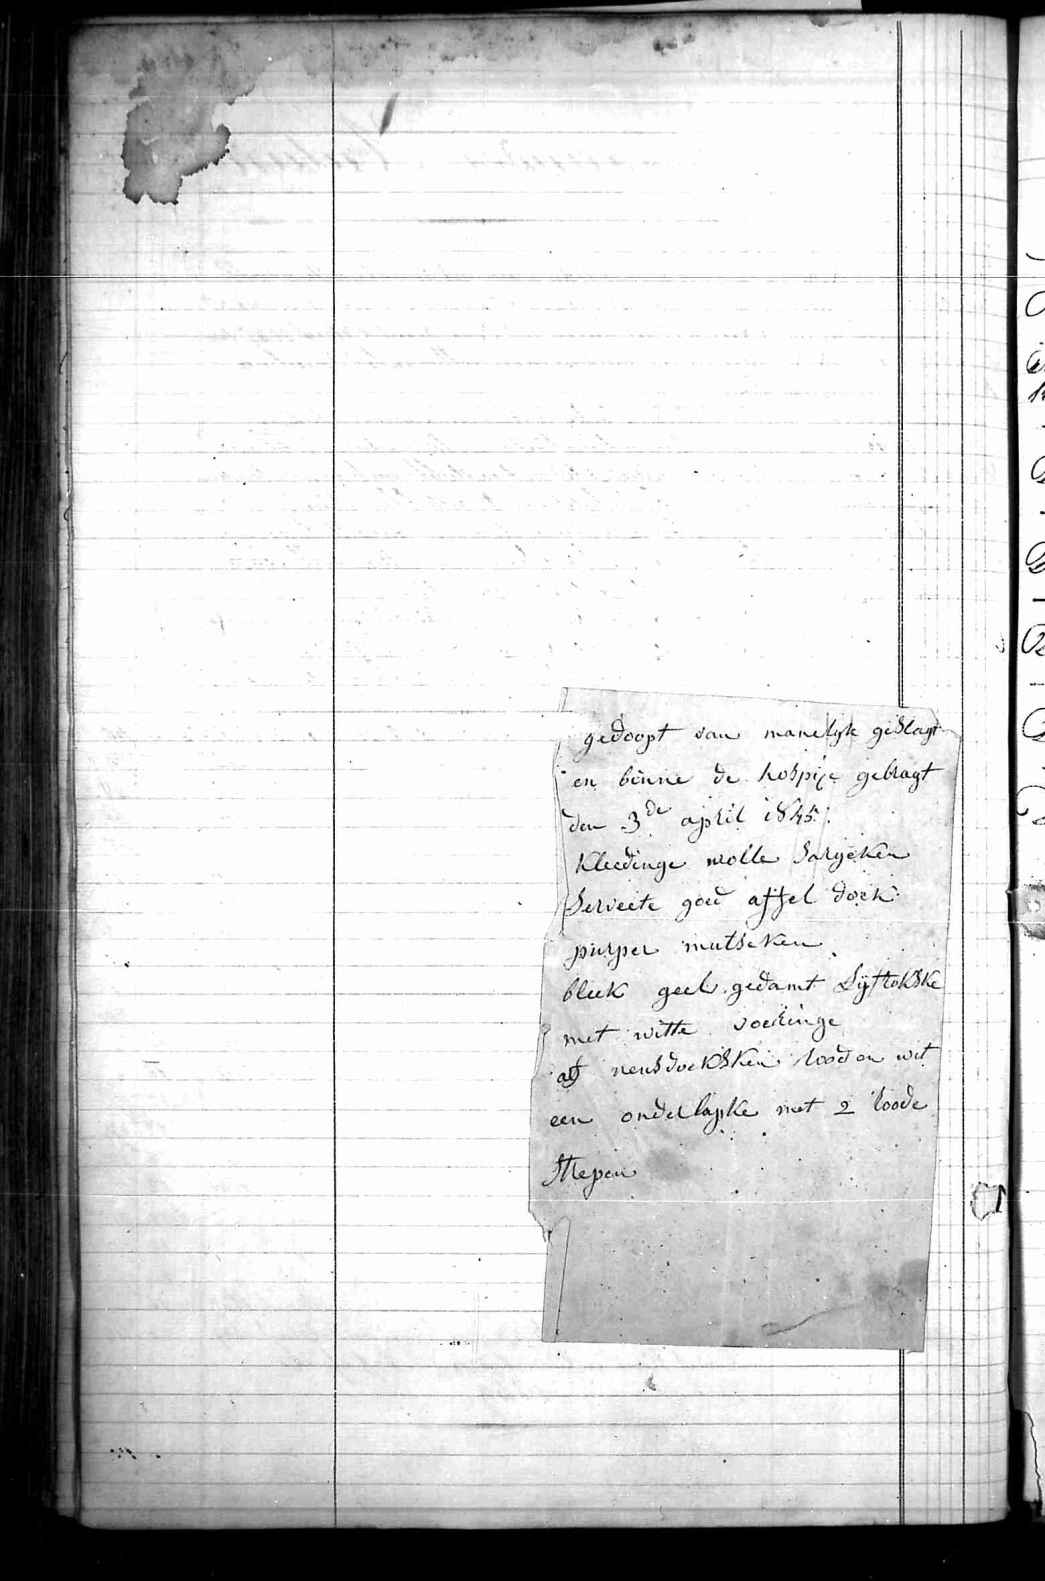 gedoopt van manelyk geslagt
en binne de hospize gebragt
den 3de april 1845
Kleedinge wolle sargeken
Serveete goed affel doek
purper mutseken
bleek geel gedamt Lyftokske
met witte voeringe
neusdoeksken rood en wit
een onderlapke met 2 roode
strepen